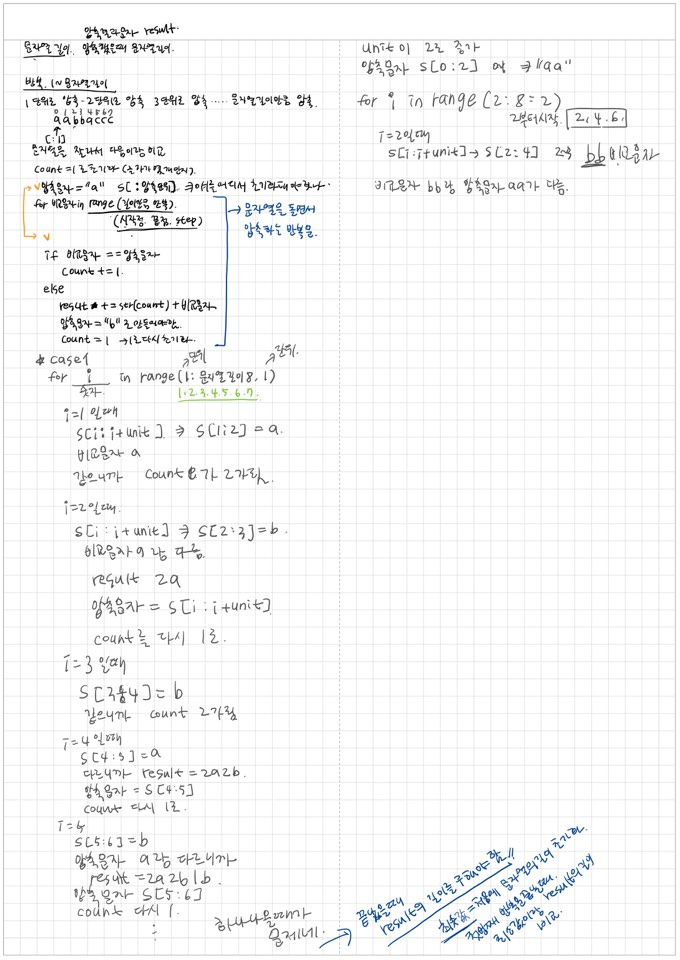 압축결과문자 result.
문자열 길이. 압축했을때 문자열길이.
반복. 1~문자열길이
1단위로 압축 - 2단위로 압축 3단위로 압축 ..... 문자열길이만큼 압축.
0 1 2 3 4 5 6 7
a a b b a c c c
[:1]
문자열을 잘라서 다음이랑 비교
count = 1로 초기화
압축문자 = "a" S[:압축단위]
for 비교문자 in range(길이만큼 반복).
(시작점. 끝점. step)
→ 문자열을 돌면서
압축하는 반복문.
if 비교문자 == 압축문자
count += 1.
else
result += str(count) + 비교문자
압축문자 = "b"로 만들어야함.
count = 1 → 1로 다시 초기화.
* case1
단위 단위.
for i in range(1: 문자열길이 8, 1)
숫자. 1. 2. 3. 4. 5. 6. 7.
i=1 일때
S[i: i+unit] ⇒ S[1:2] = a.
비교문자 a
같으니까 count가 2가됨.
i=2일때.
S[i: i+unit] ⇒ S[2:3] = b.
비교문자 a랑 다름.
result 2a
압축문자 = S[i: i+unit]
count를 다시 1로.
i=3 일때
S[3:4] = b
같으니까 count 2가됨
i=4 일때
S[4:5] = a
다르니까 result = 2a2b.
압축문자 = S[4:5]
count 다시 1로.
i=5
S[5:6] = b
압축문자 a랑 다르니까
result = 2a2b1b.
압축문자 S[5:6]
count 다시 1.
하나 남을때가
문제네.
→ 끝났을때
result의 길이를 구해야함!!
최솟값 = 처음에 문자열의 길이 초기화.
result의 길이
비교.
unit이 2로 증가
압축문자 S[0:2] ⇒ "aa"
for i in range(2:8=2)
2부터시작. 2, 4, 6.
i=2일때
S[i:i+unit] → S[2:4] bb 비교문자
비교문자 bb랑 압축문자 aa가 다름.